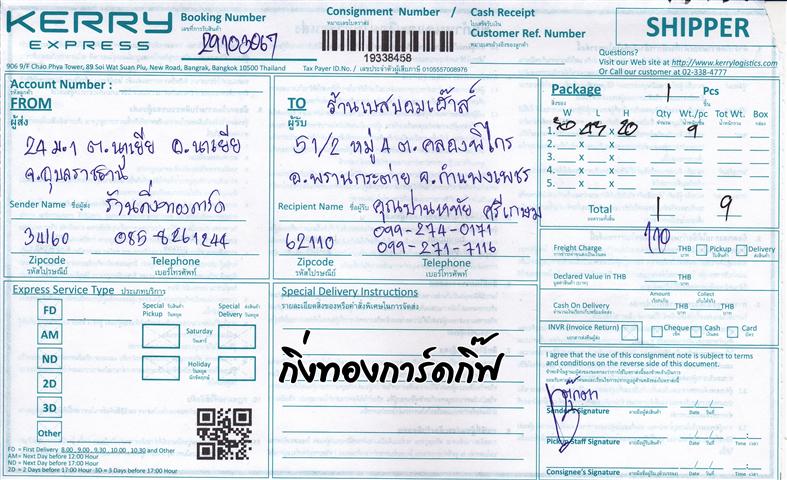 KERRY EXPRESS
Booking Number
เลขที่การรับสินค้า
29103067
Consignment Number /
หมายเลขใบตราส่ง
19338458
Cash Receipt
ใบเสร็จรับเงิน
Customer Ref. Number
หมายเลขอ้างอิงของลูกค้า
SHIPPER
Questions?
Visit our Web site at http://www.kerrylogistics.com
Or Call our customer at 02-338-4777
906 9/F Chao Phya Tower, 89 Soi Wat Suan Plu, New Road, Bangrak, Bangkok 10500 Thailand
Tax Payer ID.No. / เลขประจำตัวผู้เสียภาษี 0105557008976
Account Number :
รหัสลูกค้า
FROM
ผู้ส่ง
24 ม.1 ต.นาเยีย อ.นาเยีย
จ.อุบลราชธานี
Sender Name ชื่อผู้ส่ง ร้านกิ่งทองการ์ด
34160 085-8261244
Zipcode Telephone
รหัสไปรษณีย์ เบอร์โทรศัพท์
TO
ผู้รับ
51/2 หมู่ 4 ต.คลองพิไกร
อ.พรานกระต่าย จ.กำแพงเพชร
Recipient Name ชื่อผู้รับ คุณปานหทัย ศรีเกษม
099-274-0171
62110 099-271-7116
Zipcode Telephone
รหัสไปรษณีย์ เบอร์โทรศัพท์
Package 1 Pcs
สิ่งของ ชิ้น
W L H Qty Wt./pc Tot Wt. Box
1. x x 20 9
2. x x
3. x x
4. x x
5. x x
Total 1 9
Freight Charge 110 THB Pickup Delivery
Declared Value in THB
Amount Collect
Cash On Delivery THB THB
INVR (Invoice Return) Cheque Cash Card
I agree that the use of this consignment note is subject to terms
and conditions on the reverse side of this document.
Sender's Signature Date วันที่
Pickup Staff Signature Date วันที่ Time เวลา
Consignee's Signature Date วันที่ Time เวลา
Express Service Type ประเภทบริการ
Special Pickup Special Delivery
FD
AM Saturday
วันเสาร์
ND Holiday
วันหยุด
2D
3D
Other
FD = First Delivery 8.00 , 9.00 , 9.30 , 10.00 , 10.30 and Other
AM = Next Day before 12:00 Hour
ND = Next Day before 17:00 Hour
2D = 2 Days before 17:00 Hour 3D = 3 Days before 17:00 Hour
Special Delivery Instructions
รายละเอียดสิ่งของหรือคำสั่งพิเศษในการจัดส่ง
กิ่งทองการ์ดกิ๊ฟ